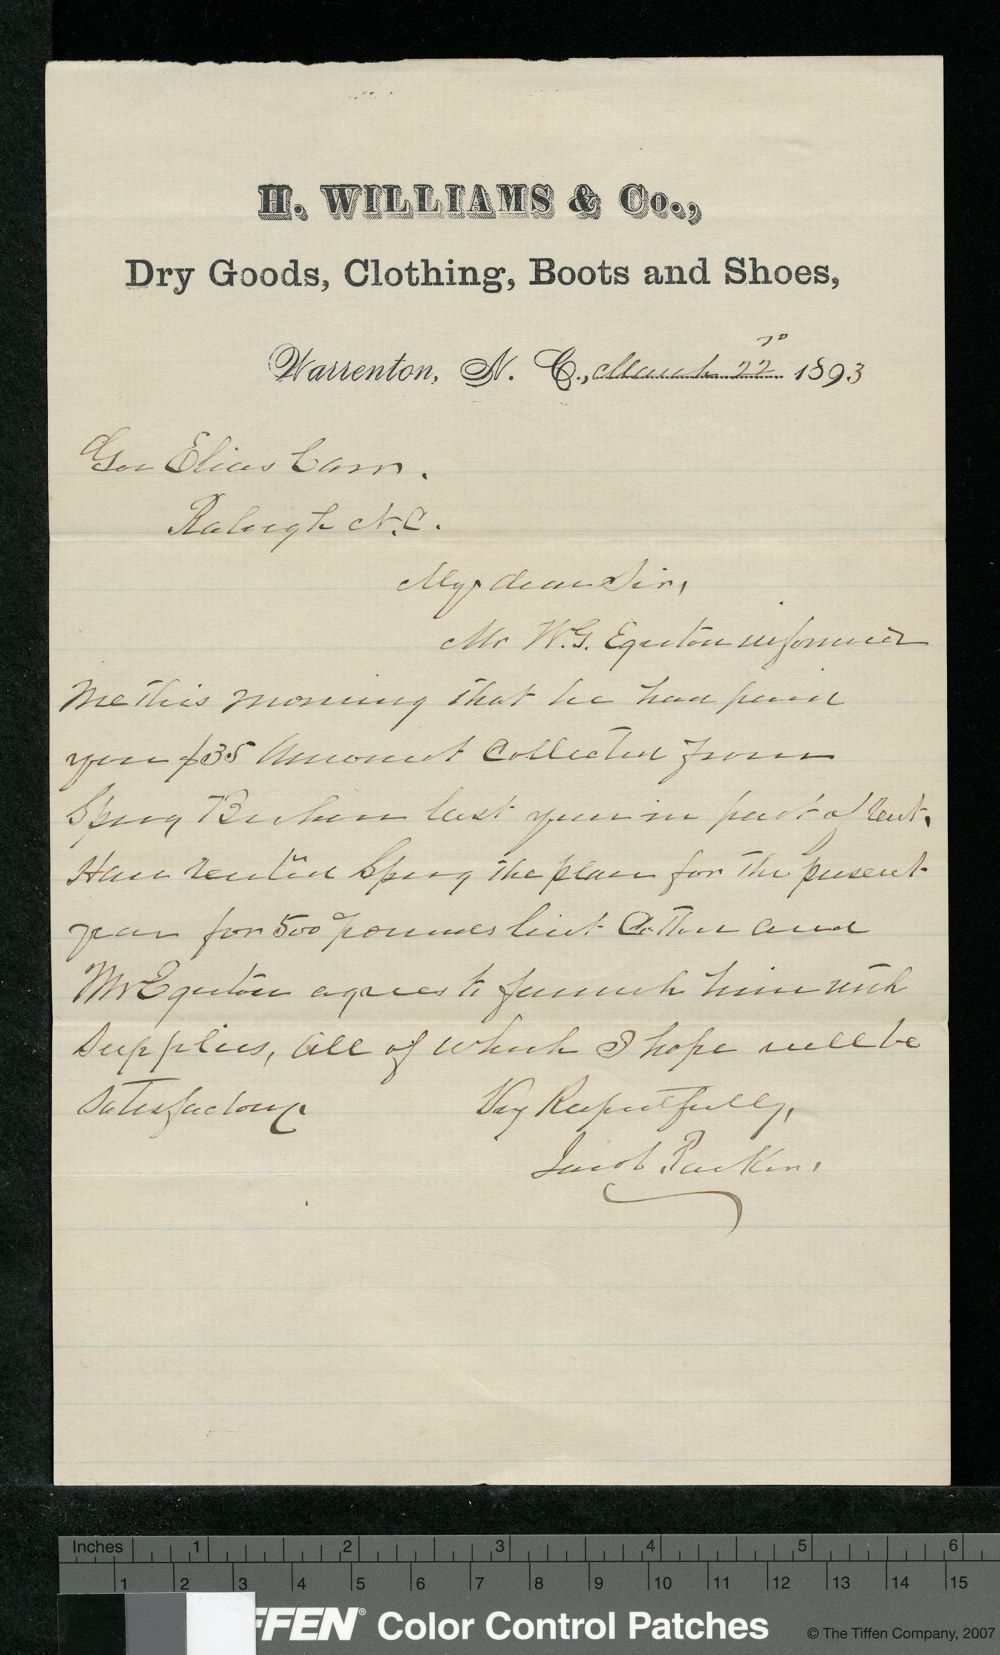 H. WILLIAMS & Co.,
Dry Goods, Clothing, Boots and Shoes,
Warrenton, N. C., March 22nd 1893
Gov Elias Carr.
Raleigh N.C.
My dear Sir,
Mr W.G. Egerton informed
me this morning that he had paid
you $35 Amount Collected from
Sprig last year in part of rent.
Have rented Sprig the place for the present
year for 500 pounds lint Cotton and
Mr Egerton agrees to furnish him with
supplies, all of which I hope will be
satisfactory.
Very Respectfully,
Jacob Parker.
Inches 1 2 3 4 5 6
1 2 3 4 5 6 7 8 9 10 11 12 13 14 15
FFEN® Color Control Patches
© The Tiffen Company, 2007